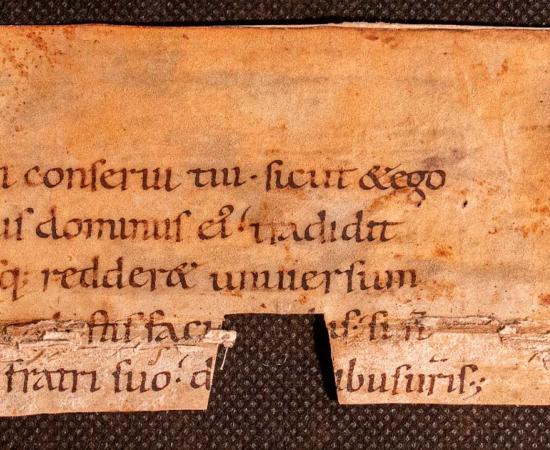 n conserui tui · sicut & ego
us dominus ei' tradidit
sq; redder& uniuersum
stis faci si n̄
fratri suo · d ibus uris;